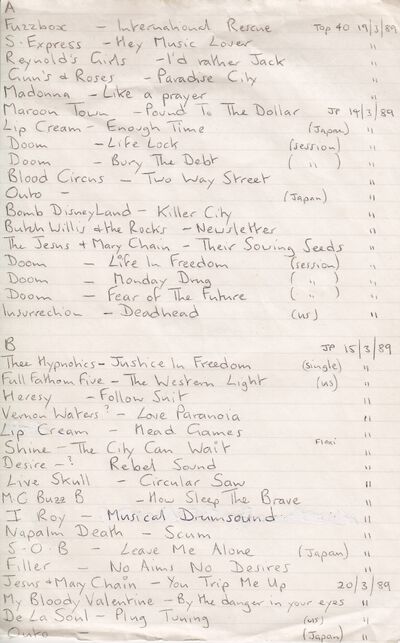 A
Fuzzbox – International Rescue Top 40 19/3/89
S. Express – Hey Music Lover "
Reynold's Girls – I'd rather Jack "
Gunn's & Roses – Paradise City "
Madonna – Like a prayer "
Maroon Town – Pound To The Dollar JP 14/3/89
Lip Cream – Enough Time (Japan) "
Doom – Life Lock (session) "
Doom – Bury The Debt ( " ) "
Blood Circus – Two Way Street "
Outo – (Japan) "
Bomb DisneyLand – Killer City "
Butch Willis & the Rocks – Newsletter "
The Jesus & Mary Chain – Their Sowing Seeds "
Doom – Life In Freedom (session) "
Doom – Monday Drug ( " ) "
Doom – Fear of The Future ( " ) "
Insurrection – Deadhead (US) "
B JP 15/3/89
Thee Hypnotics – Justice In Freedom (single) "
Full Fathom Five – The Western Light (US) "
Heresy – Follow Suit "
Vernon Waters? – Love Paranoia "
Lip Cream – Head Games "
Shine – The City Can Wait Flexi "
Desire – ? Rebel Sound "
Live Skull – Circular Saw "
M.C Buzz B – How Sleep The Brave "
I Roy – Musical Drumsound "
Napalm Death – Scum "
S.O.B – Leave Me Alone (Japan) "
Filler – No Aims No Desires "
Jesus & Mary Chain – You Trip Me Up 20/3/89
My Bloody Valentine – By the danger in your eyes "
De La Soul – Plug Tuning (US) "
Outo – (Japan) "